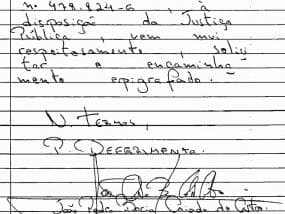 nº 478.824-6, à
disposição da Justiça
Pública, vem mui
respeitosamente, solici
tar o encaminha
mento epigrafado.
N. Termos,
P. Deferimento.
João Pedro Caiado de Castro